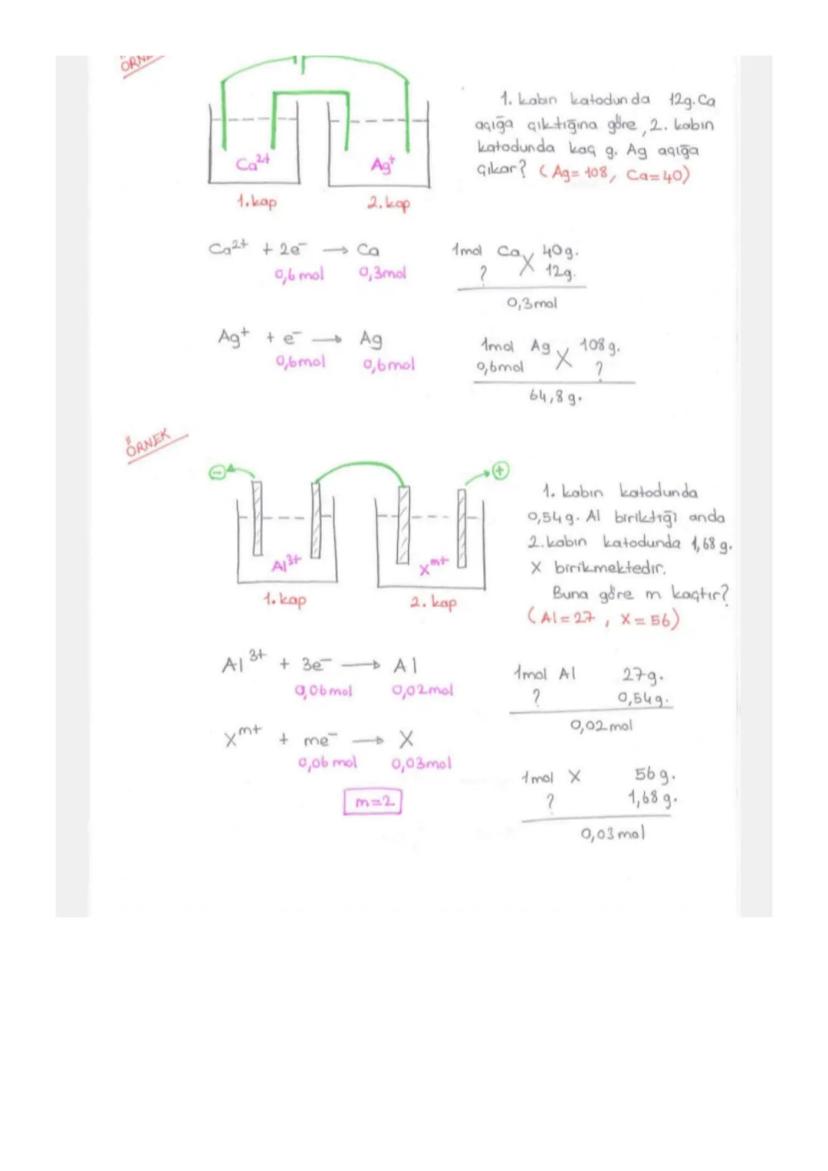 ÖRNEK
1. kabın katodunda 12g. Ca
açığa çıktığına göre, 2. kabın
katodunda kaç g. Ag açığa
çıkar? (Ag=108, Ca=40)
Ca²⁺ Ag⁺
1.kap 2.kap
Ca²⁺ + 2e⁻ → Ca
0,6 mol 0,3mol
1mol Ca 40g.
? 12g.
0,3mol
Ag⁺ + e⁻ → Ag
0,6mol 0,6mol
1mol Ag 108g.
0,6mol ?
64,8g.
ÖRNEK
⊖ ⊕
Al³⁺ Xᵐ⁺
1.kap 2.kap
1. kabın katodunda
0,54g. Al biriktiği anda
2.kabın katodunda 1,68g.
X birikmektedir.
Buna göre m kaçtır?
(Al=27, X=56)
Al³⁺ + 3e⁻ → Al
0,06mol 0,02mol
1mol Al 27g.
? 0,54g.
0,02mol
Xᵐ⁺ + me⁻ → X
0,06 mol 0,03mol
m=2
1mol X 56g.
? 1,68g.
0,03mol